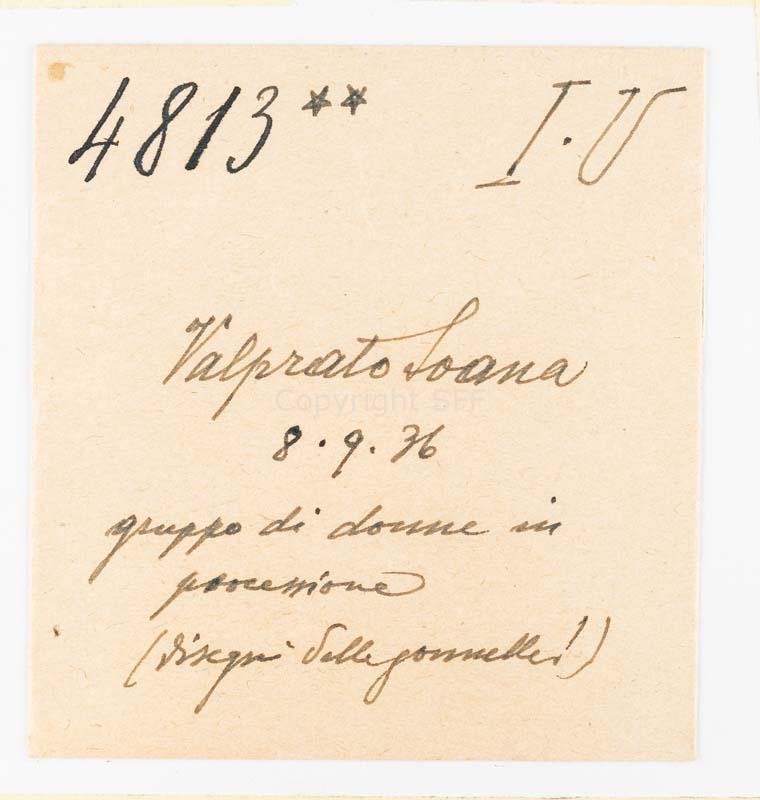 4813** I.U
Valprato Soana
Copyright SEF
8.9.36
gruppo di donne in
processione
(disegni delle gonnelle!)